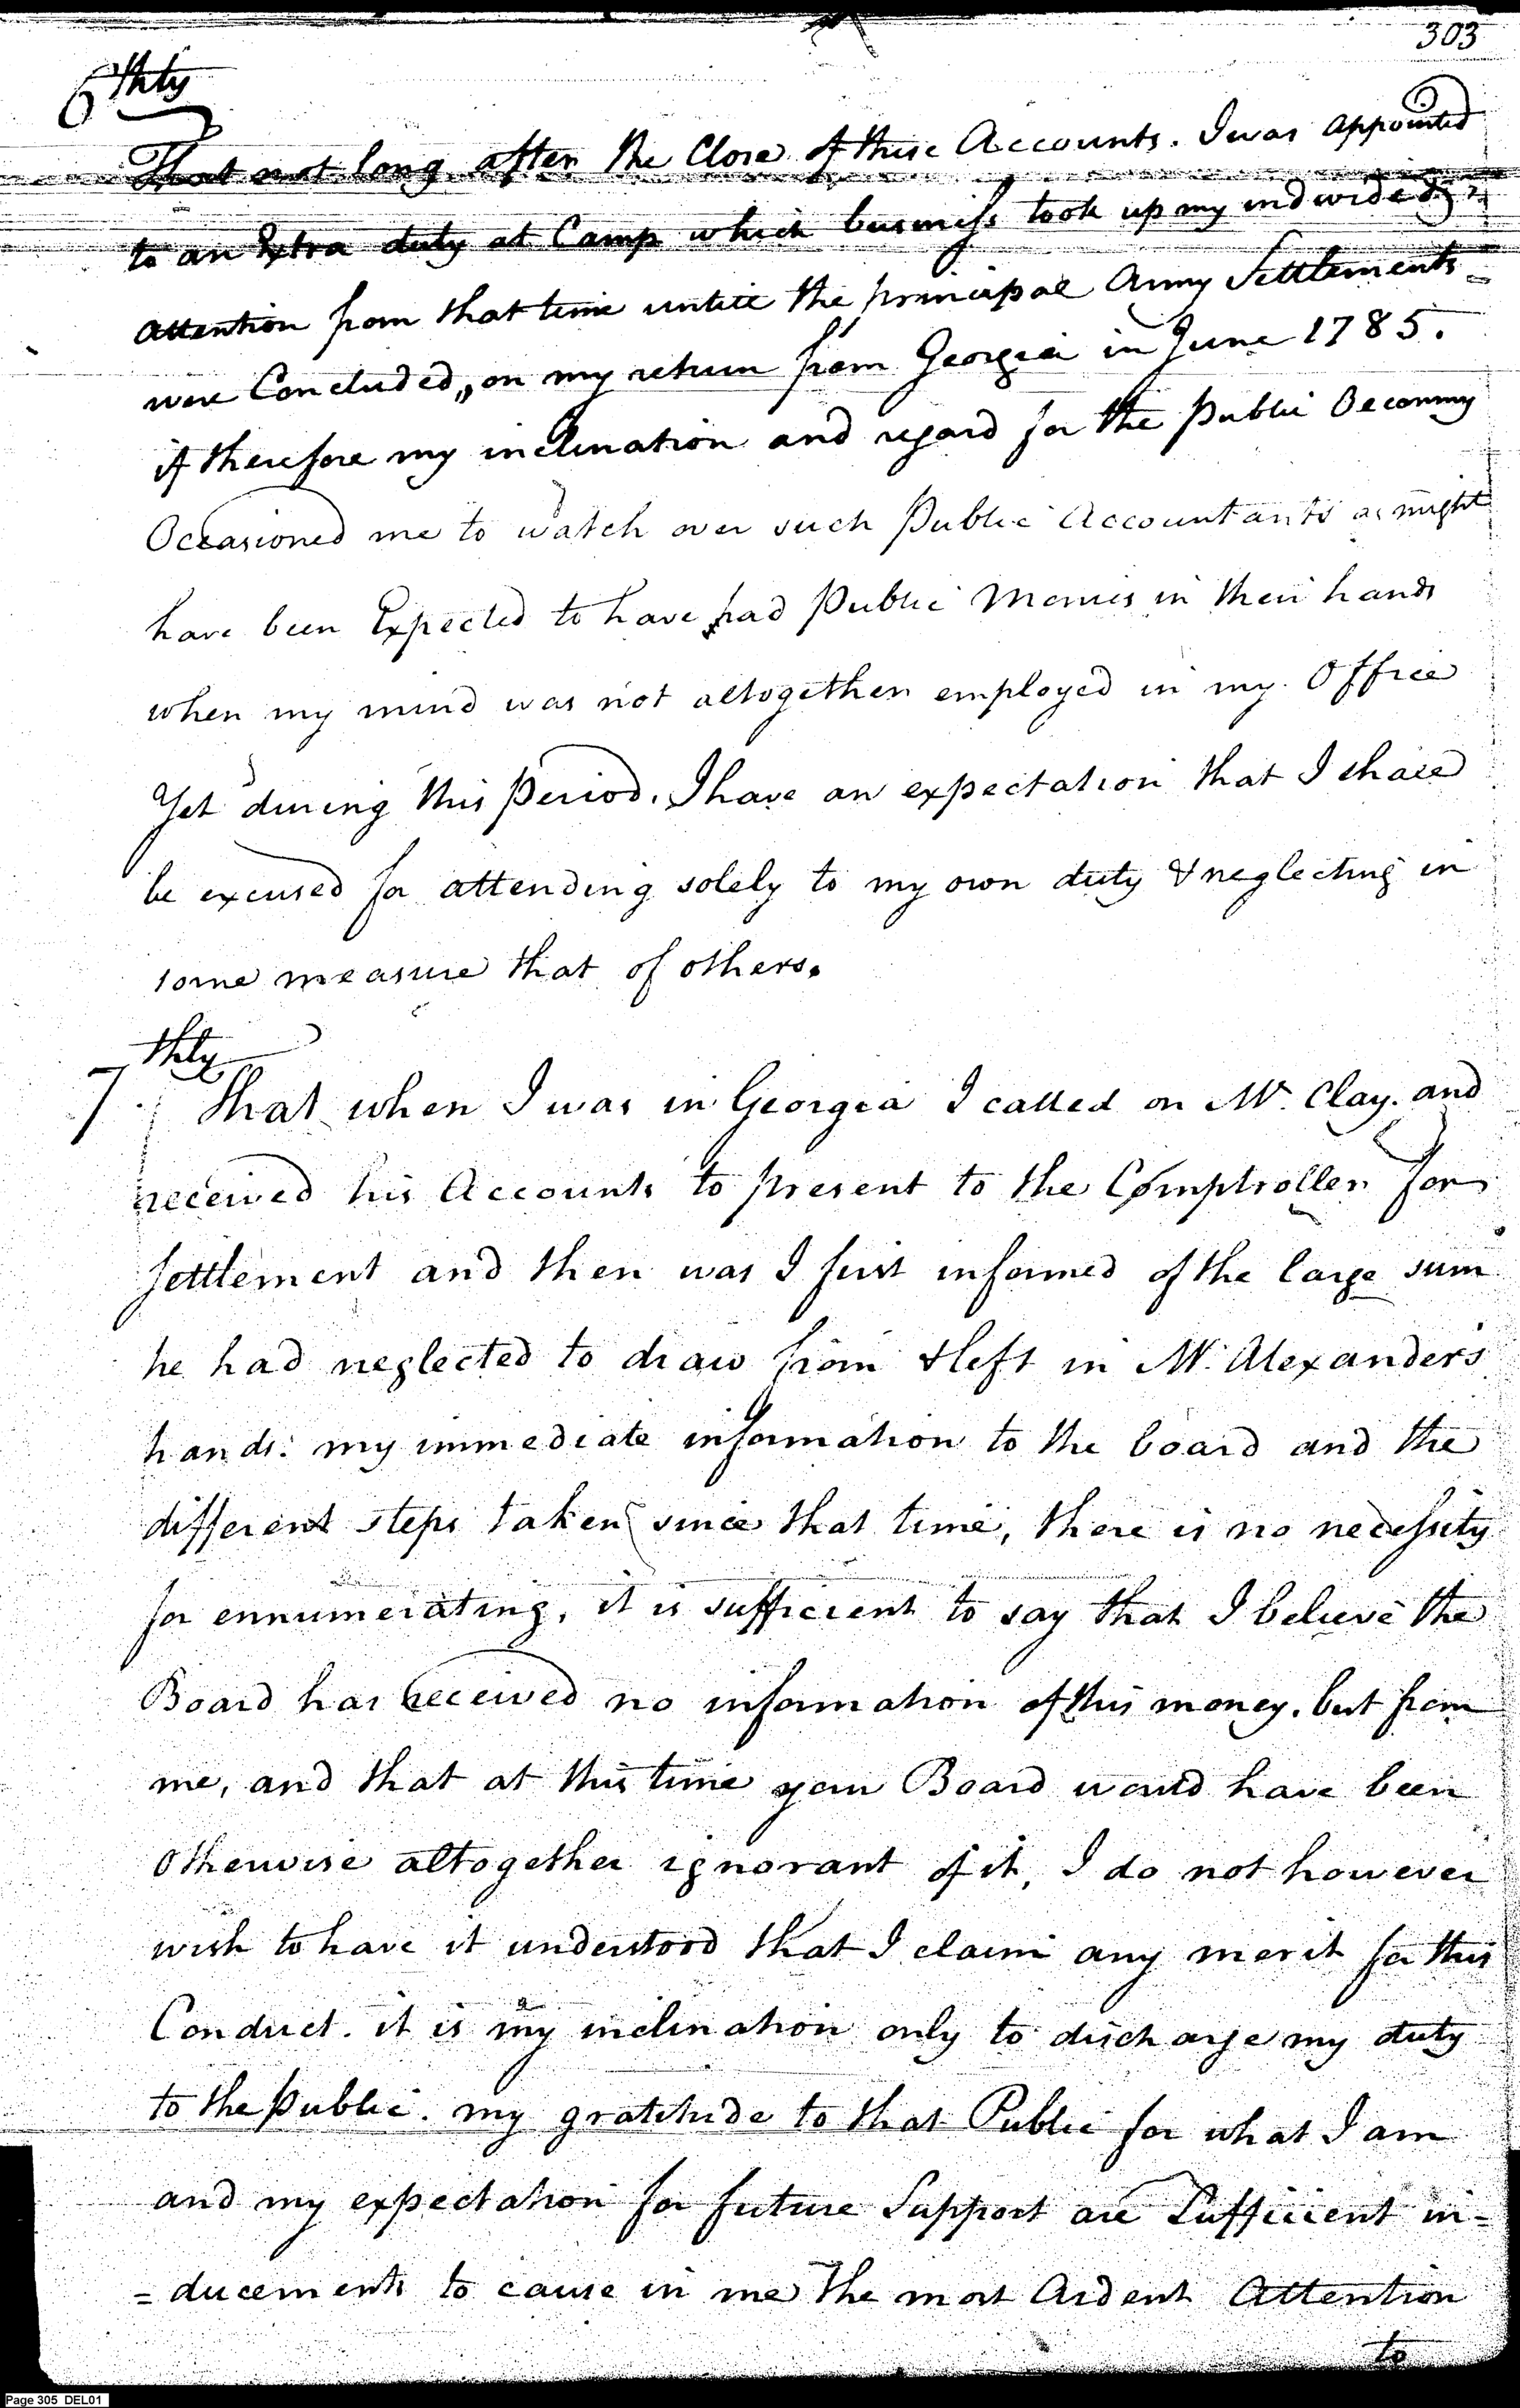 303
6thly
That not long after the Close of these Accounts. I was appointed
to an Extra duty at Camp which business took up my undivided
attention from that time untill the principal Army Settlements
were Concluded, on my return from Georgia in June 1785.
if therefore my inclination and regard for the Public Oeconmy
Occasioned me to watch over such Public Accountants as might
have been Expected to have had Public Monies in their hands
when my mind was not altogether employed in my Office
Yet during this Period. I have an expectation that I shall
be excused for attending solely to my own duty & neglecting in
some measure that of others.
7thly That when I was in Georgia I called on Mr. Clay. and
received his Accounts to present to the Comptroller for
Settlement and then was I first informed of the large sum
he had neglected to draw from & left in Mr. Alexander's
hands: my immediate information to the board and the
different steps taken since that time, there is no necessity
for ennumerating, it is sufficient to say that I believe the
Board has received no information of this money. but from
me, and that at this time your Board would have been
Otherwise altogether ignorant of it, I do not however
wish to have it understood that I claim any merit for this
Conduct. it is my inclination only to discharge my duty
to the Public. my gratitude to that Public for what I am
and my expectation for future Support are Sufficient in=
=ducements to cause in me the most Ardent Attention
to
Page 305 DEL01